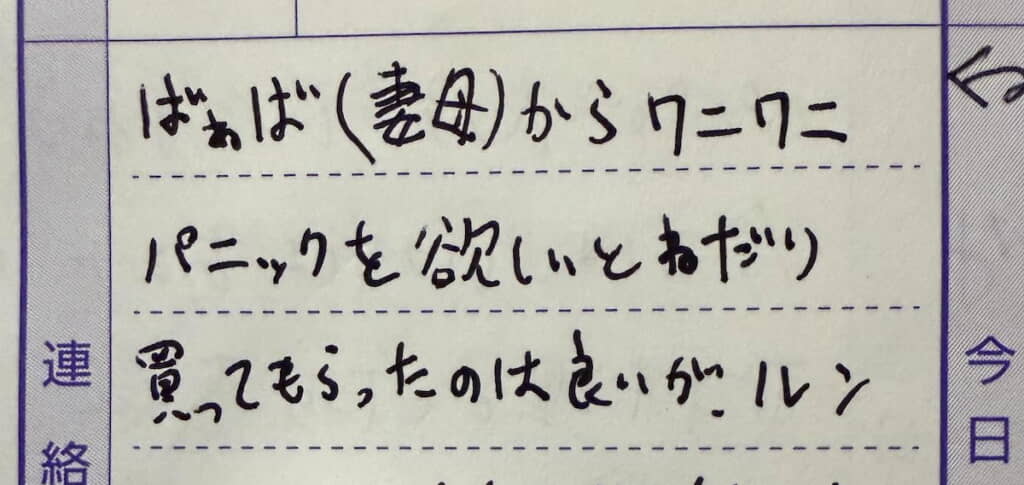 ばぁば(妻母)からワニワニ
パニックを欲しいとねだり
買ってもらったのは良いが、ルン
連絡
今日